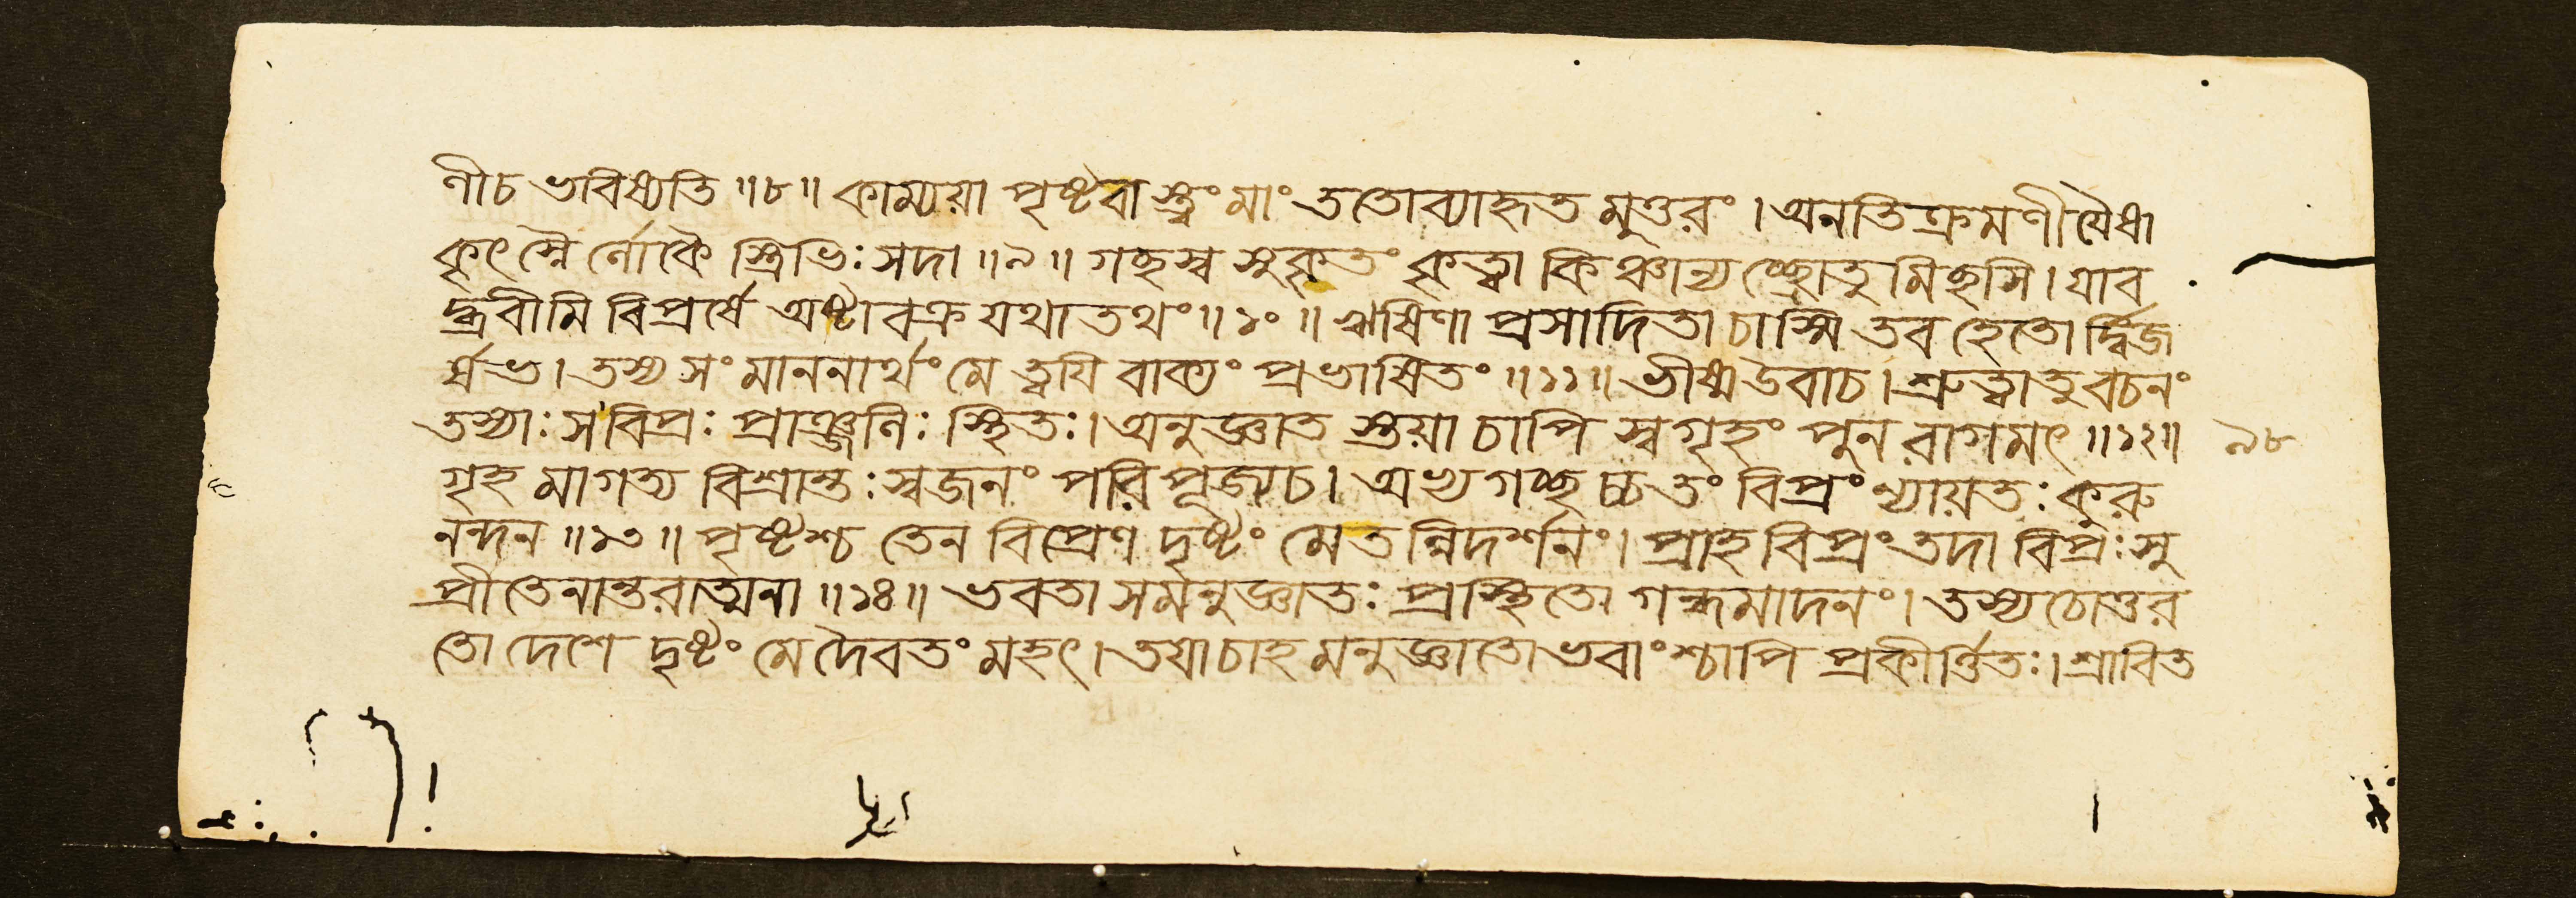 ণীচ ভবিষ্যতি ॥৮॥ কাম্যয়া পৃষ্টবাংস্ত্বং মাং ততোব্যাহৃত মুত্তরং । অনতিক্রমণীয়ৈষা
কৃৎস্নৈ র্লোকৈ স্ত্রিভিঃ সদা ॥৯॥ গচ্ছস্ব সুকৃতং কৃত্বা কিঞ্চান্য চ্ছ্রোতু মিচ্ছসি । যাব
দ্ব্রবীমি বিপ্রর্ষে অষ্টাবক্র যথাতথং ॥১০॥ ঋষিণা প্রসাদিতা চাস্মি তব হেতো র্দ্বিজ
র্ষভ । তস্য সংমাননার্থং মে ত্বয়ি বাক্যং প্রভাষিতং ॥১১॥ ভীষ্মউবাচ । শ্রুত্বাতুবচনং
তস্যাঃ স বিপ্রঃ প্রাঞ্জলিঃ স্থিতঃ । অনুজ্ঞাত স্তয়া চাপি স্বগৃহং পুনরাগমৎ ॥১২॥
৯৮
গৃহ মাগত্য বিশ্রান্তঃ স্বজনং পরিপূজ্যচ । অভ্যগচ্ছচ্চতং বিপ্রং ন্যায়তঃ কুরু
নন্দন ॥১৩॥ পৃষ্টশ্চ তেন বিপ্রেণ দৃষ্টং মেতন্নিদর্শনং । প্রাহ বিপ্রং তদা বিপ্রঃ সু
প্রীতেনান্তরাত্মনা ॥১৪॥ ভবতা সমনুজ্ঞাতঃ প্রস্থিতো গন্ধমাদনং । তস্যচোত্তর
তো দেশে দৃষ্টং মে দৈবতং মহৎ । তয়াচাহ মনুজ্ঞাতো ভবাংশ্চাপি প্রকীর্ত্তিতঃ । শ্রাবিত